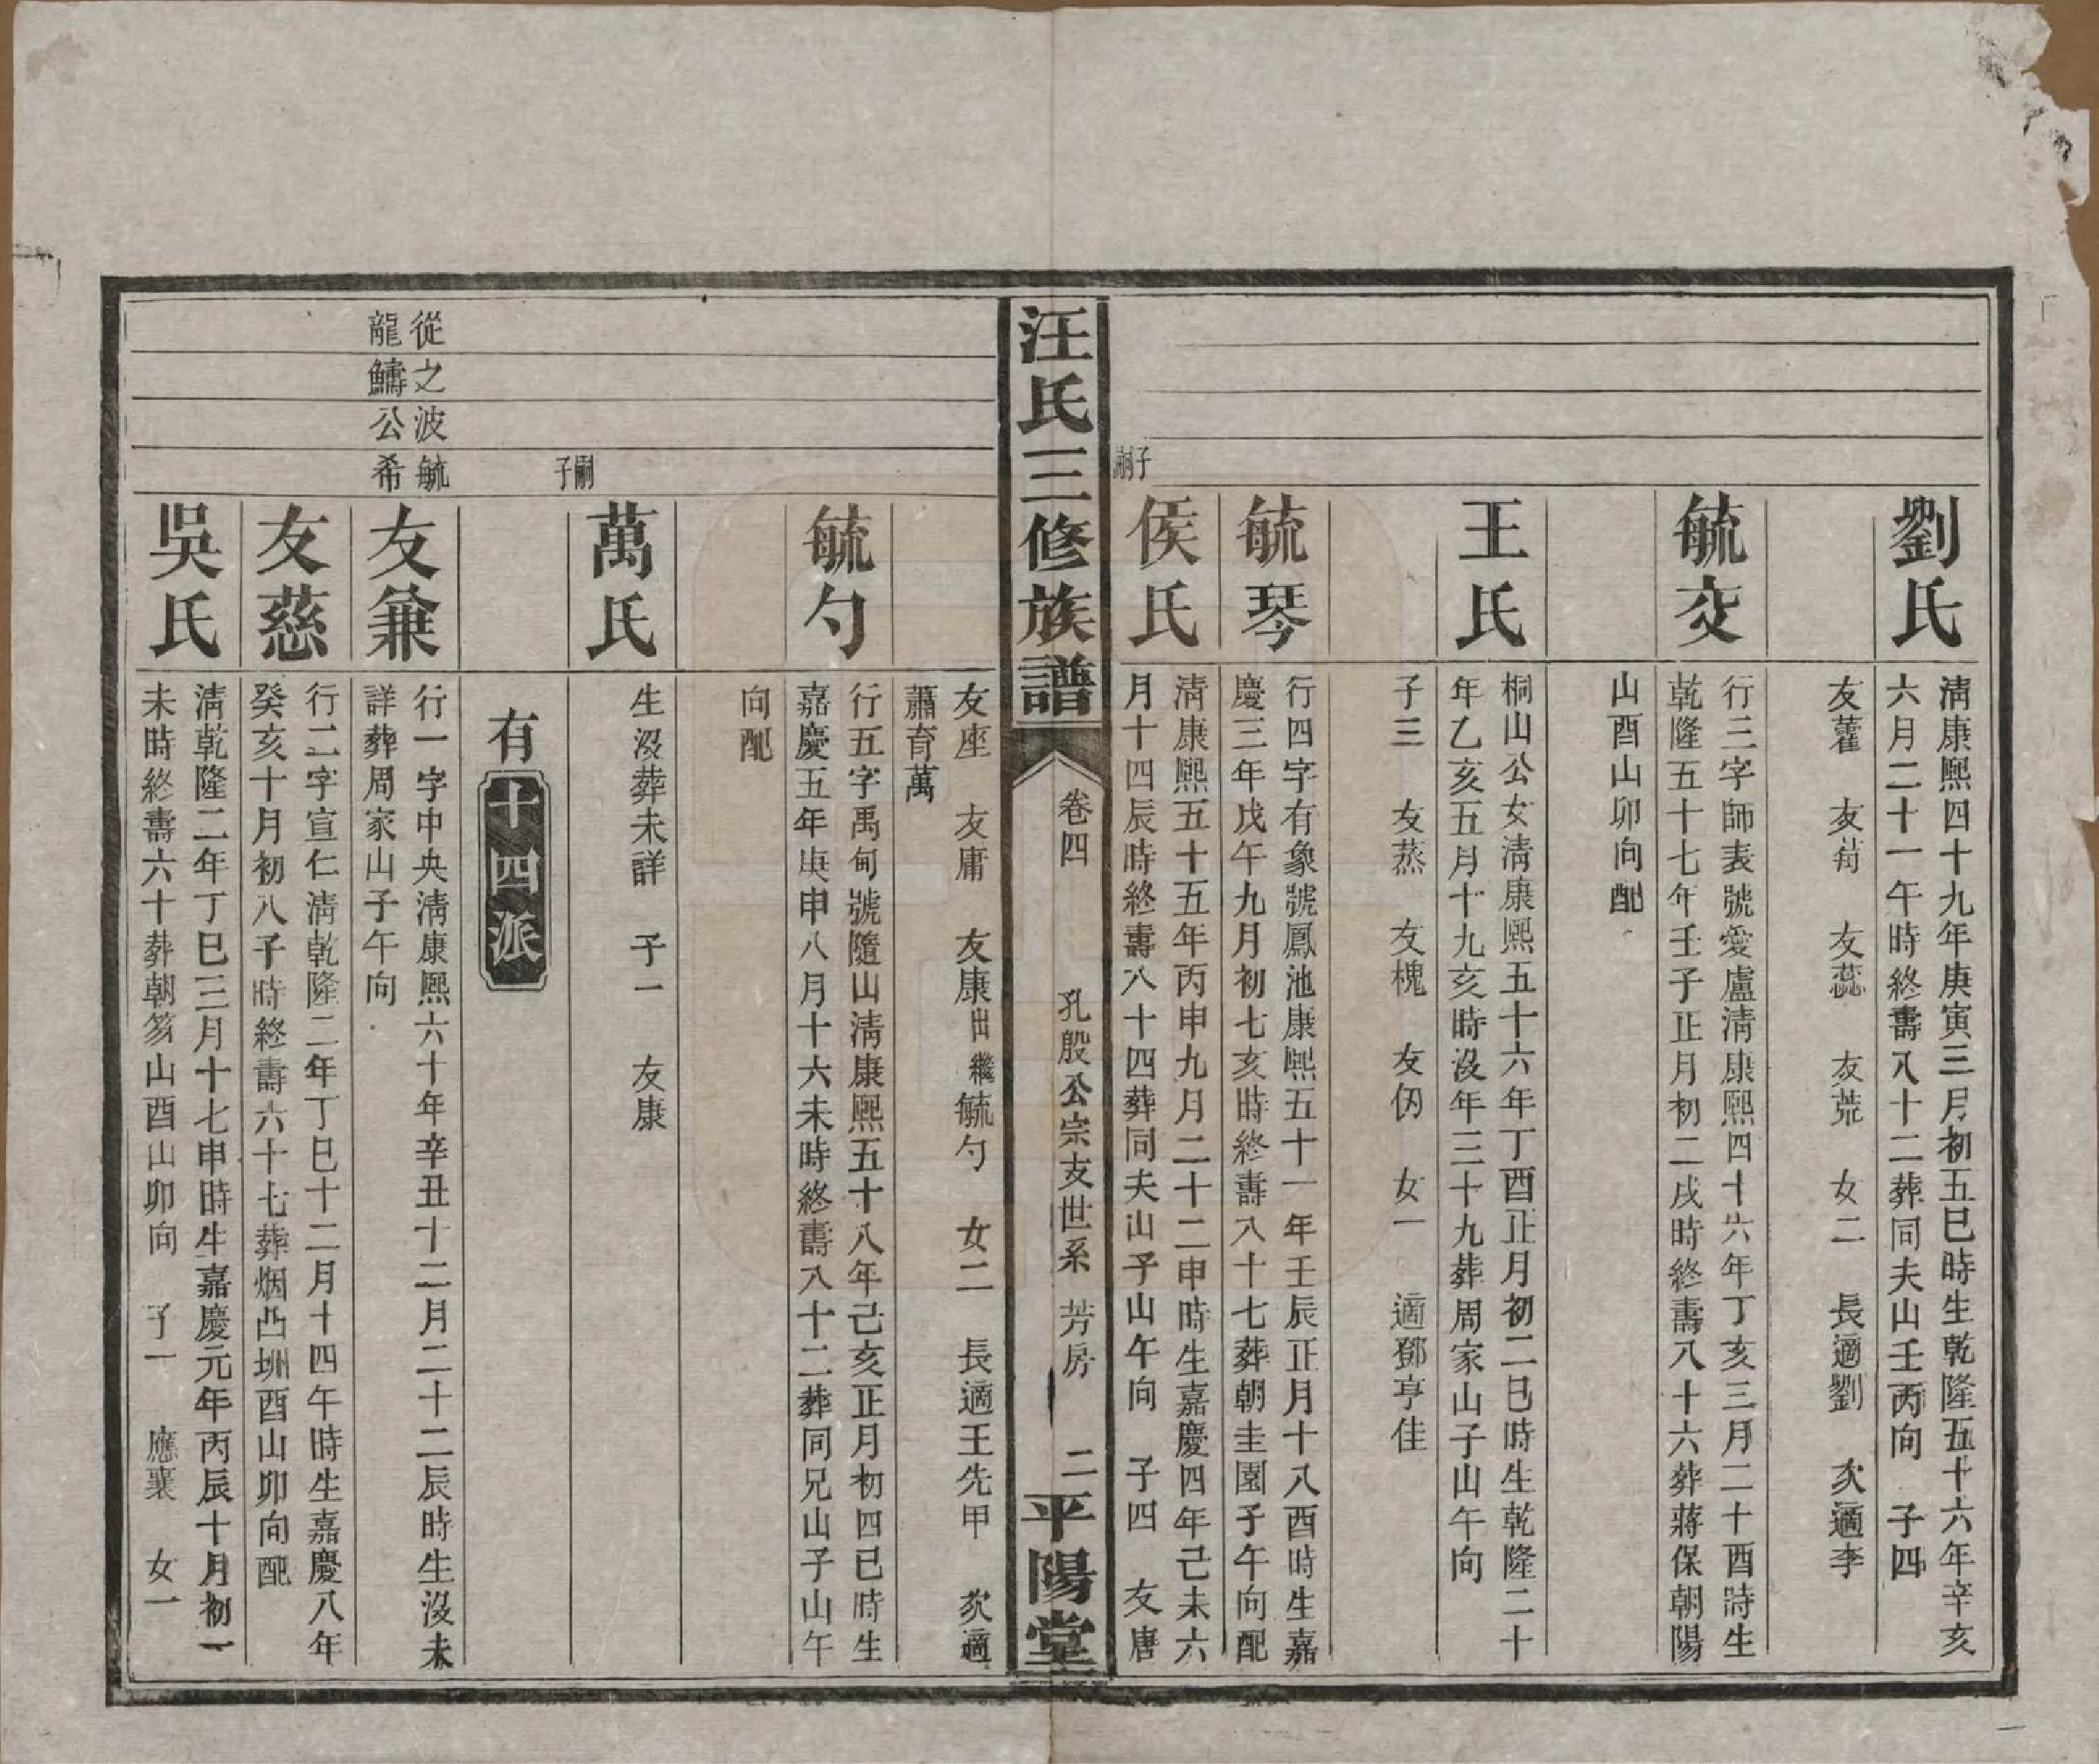 劉氏
淸康熙四十九年庚寅三月初五巳時生乾隆五十六年辛亥
六月二十一午時終壽八十二葬同夫山壬丙向　子四
友藿　友荷　友蕊　友荒　女二　長適劉　次適李
毓交
行三字師表號愛盧淸康熙四十六年丁亥三月二十酉時生
乾隆五十七年壬子正月初二戌時終壽八十六葬蔣保朝陽
山酉山卯向配
王氏
桐山公女淸康熙五十六年丁酉正月初二巳時生乾隆二十
年乙亥五月十九亥時沒年三十九葬周家山子山午向
子三　友蒸　友槐　友仭　女一　適鄧亨佳
毓琴
行四字有象號鳳池康熙五十一年壬辰正月十八酉時生嘉
慶三年戊午九月初七亥時終壽八十七葬朝圭園子午向配
子嗣
侯氏
淸康熙五十五年丙申九月二十二申時生嘉慶四年己未六
月十四辰時終壽八十四葬同夫山子山午向　子四　友唐
汪氏三修族譜
卷四　孔殷公宗支世系　芳房　二
平陽堂
友座　友庸　友康出繼毓勺　女二　長適王先甲　次適
蕭育萬
毓勺
行五字禹甸號隨山淸康熙五十八年己亥正月初四巳時生
嘉慶五年庚申八月十六未時終壽八十二葬同兄山子山午
向配
嗣子
萬氏
生沒葬未詳　子一　友康
有十四派
從之波毓
龍鱅公希
友兼
行一字中央淸康熙六十年辛丑十二月二十二辰時生沒未
詳葬周家山子午向
友慈
行二字宣仁淸乾隆二年丁巳十二月十四午時生嘉慶八年
癸亥十月初八子時終壽六十七葬烟凸圳酉山卯向配
吳氏
淸乾隆二年丁巳三月十七申時生嘉慶元年丙辰十月初一
未時終壽六十葬朝笏山酉山卯向　子一　應襄　女一